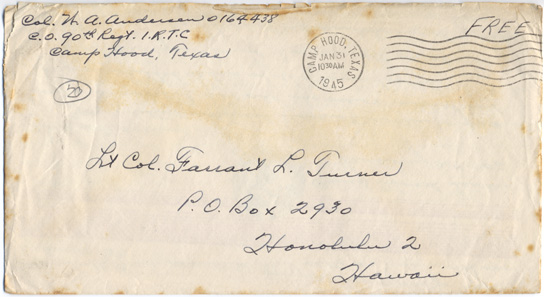 Col. W. A. Anderson 0164438
C.O. 90th Regt. I.R.T.C
Camp Hood, Texas
FREE
CAMP HOOD, TEXAS
JAN 31
10 30 AM
1945
20
Lt Col. Farrant L. Turner
P.O. Box 2930
Honolulu 2
Hawaii